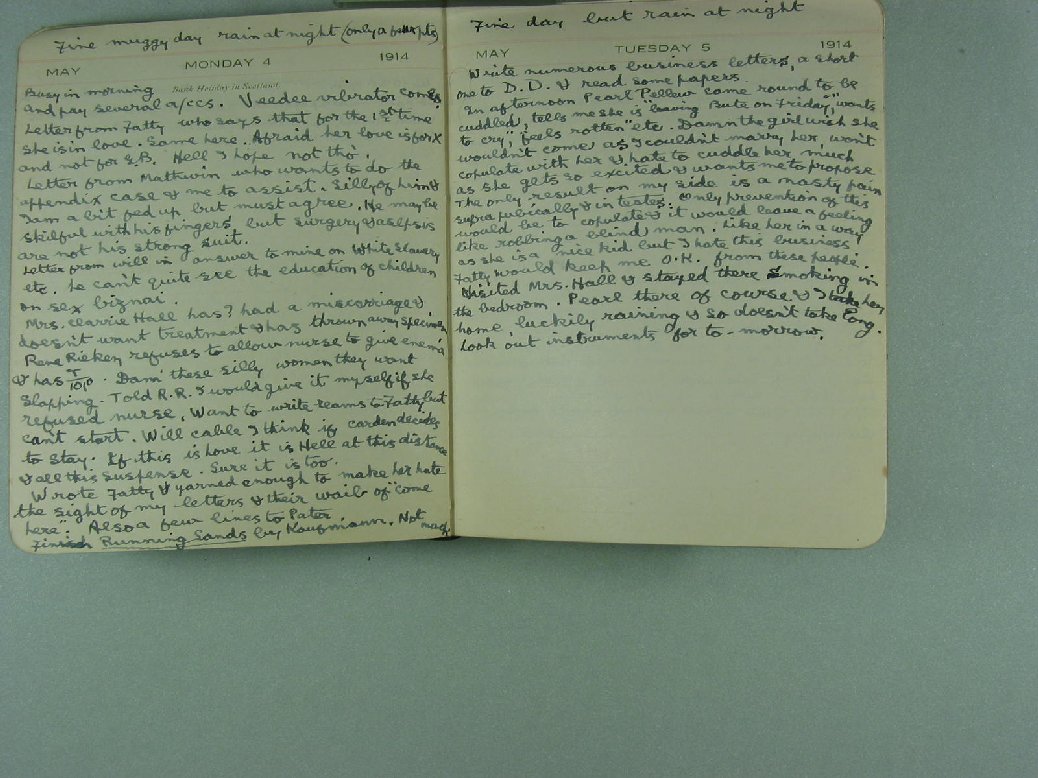 Fine muggy day rain at night (only a few pts)
MAY MONDAY 4 1914
Bank Holiday in Scotland
Busy in morning
and pay several a/ccs. Veedee vibrator comes.
Letter from Fatty who says that for the 1st time
she is in love. Same here. Afraid her love is for X
and not for S.B. Hell I hope not tho'.
Letter from Mathwin who wants to do the
appendix case & me to assist. Silly of him &
I am a bit fed up but must agree. He may be
skilful with his fingers but surgery & asepsis
are not his strong suit.
Letter from Will in answer to mine on White Slavery
etc. he can't quite see the education of children
on sex biznai.
Mrs. Clarrie Hall has? had a miscarriage &
doesn't want treatment & has thrown away specimen
Rene Riekey refuses to allow nurse to give enema
& has T 101.0. Dam' these silly women they want
slapping. Told R.R. I would give it myself if she
refused nurse. Want to write reams to Fatty but
can't start. Will cable I think if Carden decides
to stay. If this is love it is Hell at this distance
& all this suspense. Sure it is too.
Wrote Fatty & yarned enough to make her hate
the sight of my letters & their wails of "come
here". Also a few lines to Pater
Finish Running Sands by Kaufmann. Not mag.
Fine day but rain at night
MAY TUESDAY 5 1914
Write numerous business letters, a short
one to D.D. & read some papers.
In afternoon Pearl Pellew came round to be
cuddled, tells me she is "leaving Bute on Friday", "wants
to cry", "feels rotten" etc. Damn the girl wish she
wouldn't come as I couldn't marry her, won't
copulate with her & hate to cuddle her much
as she gets so excited & wants me to propose
The only result on my side is a nasty pain
supra pubically & in testes. Only prevention of this
would be to copulate & it would leave a feeling
like robbing a blind man. Like her in a way
as she is a nice kid but I hate this business
Fatty would keep me O.H. from these people.
Visited Mrs. Hall & stayed there smoking in
the bedroom. Pearl there of course & I take her
home luckily raining & so doesn't take long.
Look out instruments for to-morrow.